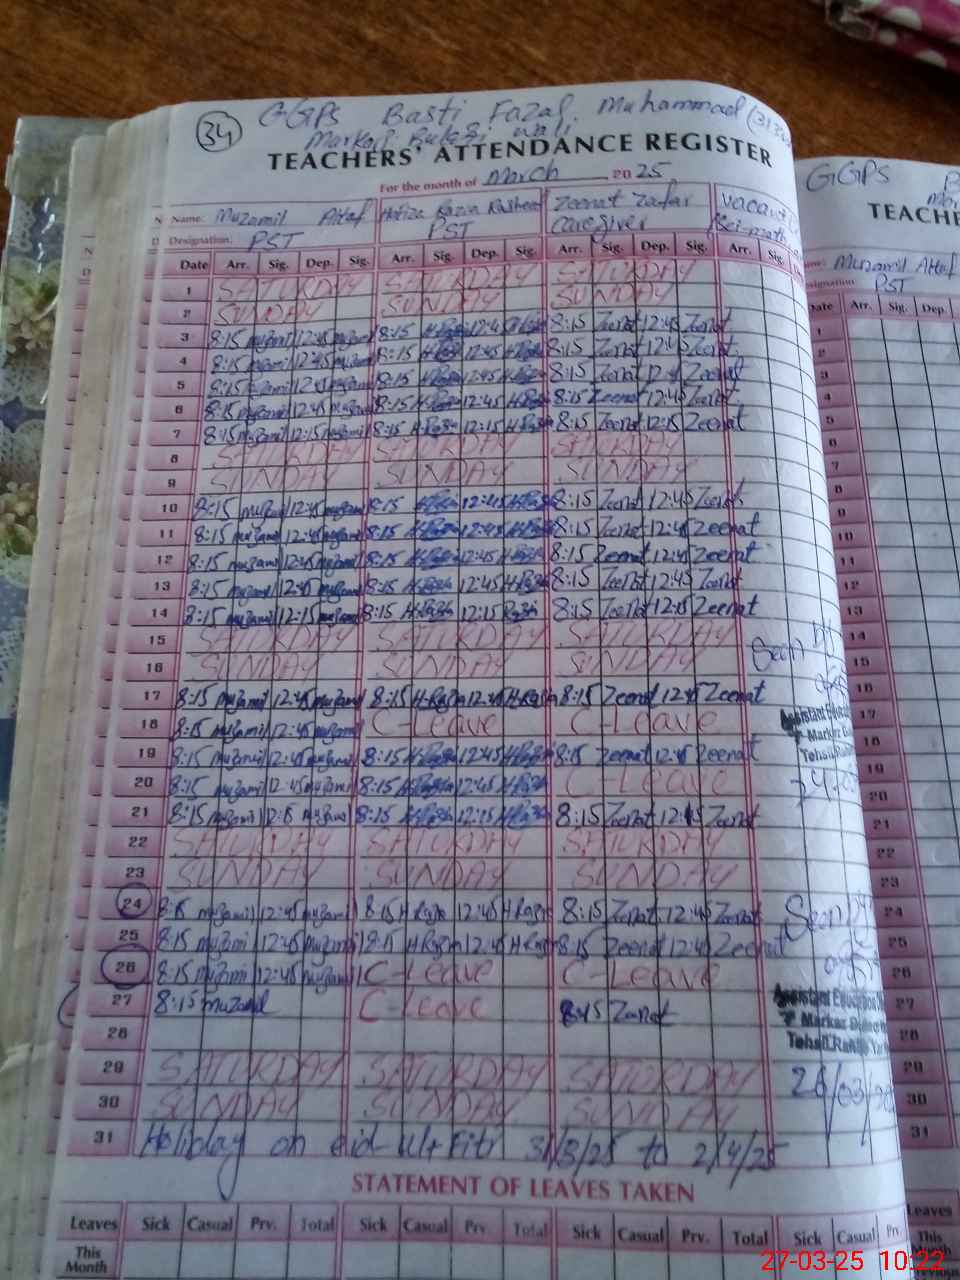 34 GGPS Basti Fazal Muhammad
Markaz
TEACHERS' ATTENDANCE REGISTER
For the month of March 2025
Name: Muzamil Altaf Hafiza Razia Rasheed Zeenat Zafar Vacant
Designation: PST PST Caregiver
Date Arr. Sig. Dep. Sig. Arr. Sig. Dep. Sig. Arr. Sig. Dep. Sig. Arr. Sig.
1 SATURDAY SATURDAY SATURDAY
2 SUNDAY SUNDAY SUNDAY
3 8:15 muzamil 12:45 muzamil 8:15 H-Razia 12:45 H-Razia 8:15 Zeenat 12:45 Zeenat
4 8:15 muzamil 12:45 muzamil 8:15 H-Razia 12:45 H-Razia 8:15 Zeenat 12:45 Zeenat
5 8:15 muzamil 12:45 muzamil 8:15 H-Razia 12:45 H-Razia 8:15 Zeenat 12:45 Zeenat
6 8:15 muzamil 12:45 muzamil 8:15 H-Razia 12:45 H-Razia 8:15 Zeenat 12:45 Zeenat
7 8:15 muzamil 12:15 muzamil 8:15 H-Razia 12:15 H-Razia 8:15 Zeenat 12:15 Zeenat
8 SATURDAY SATURDAY SATURDAY
9 SUNDAY SUNDAY SUNDAY
10 8:15 muzamil 12:45 muzamil 8:15 H-Razia 12:45 H-Razia 8:15 Zeenat 12:45 Zeenat
11 8:15 muzamil 12:45 muzamil 8:15 H-Razia 12:45 H-Razia 8:15 Zeenat 12:45 Zeenat
12 8:15 muzamil 12:45 muzamil 8:15 H-Razia 12:45 H-Razia 8:15 Zeenat 12:45 Zeenat
13 8:15 muzamil 12:45 muzamil 8:15 H-Razia 12:45 H-Razia 8:15 Zeenat 12:45 Zeenat
14 8:15 muzamil 12:15 muzamil 8:15 H-Razia 12:15 Razia 8:15 Zeenat 12:15 Zeenat
15 SATURDAY SATURDAY SATURDAY
16 SUNDAY SUNDAY SUNDAY
Seen
17 8:15 muzamil 12:45 muzamil 8:15 H-Razia 12:45 H-Razia 8:15 Zeenat 12:45 Zeenat
18 8:15 muzamil 12:45 muzamil C-Leave C-Leave
Assistant Education
Markaz
Tehsil
19 8:15 muzamil 12:45 muzamil 8:15 H-Razia 12:45 H-Razia 8:15 Zeenat 12:45 Zeenat
20 8:15 muzamil 12:45 muzamil 8:15 H-Razia 12:45 H-Razia C-Leave
21 8:15 muzamil 12:15 muzamil 8:15 H-Razia 12:15 H-Razia 8:15 Zeenat 12:15 Zeenat
22 SATURDAY SATURDAY SATURDAY
23 SUNDAY SUNDAY SUNDAY
24 8:15 muzamil 12:45 muzamil 8:15 H Razia 12:45 H Razia 8:15 Zeenat 12:45 Zeenat
Seen
25 8:15 muzamil 12:45 muzamil 8:15 H Razia 12:45 H Razia 8:15 Zeenat 12:45 Zeenat
26 8:15 muzamil 12:45 muzamil C-Leave C-Leave
27 8:15 muzamil C-Leave 8:15 Zeenat
Assistant Education
Markaz
Tehsil
28
29 SATURDAY SATURDAY SATURDAY
30 SUNDAY SUNDAY SUNDAY
26/03/
31 Holiday on eid-ul-Fitr 31/3/25 to 2/4/25
STATEMENT OF LEAVES TAKEN
Leaves Sick Casual Prv. Total Sick Casual Prv. Total Sick Casual Prv. Total Sick Casual Prv.
This Month
GGPS
TEACHE
Muzamil Altaf
PST
Date Arr. Sig. Dep.
1
2
3
4
5
6
7
8
9
10
11
12
13
14
15
16
17
18
19
20
21
22
23
24
25
26
27
28
29
30
31
Leaves
This Month
27-03-25 10:22